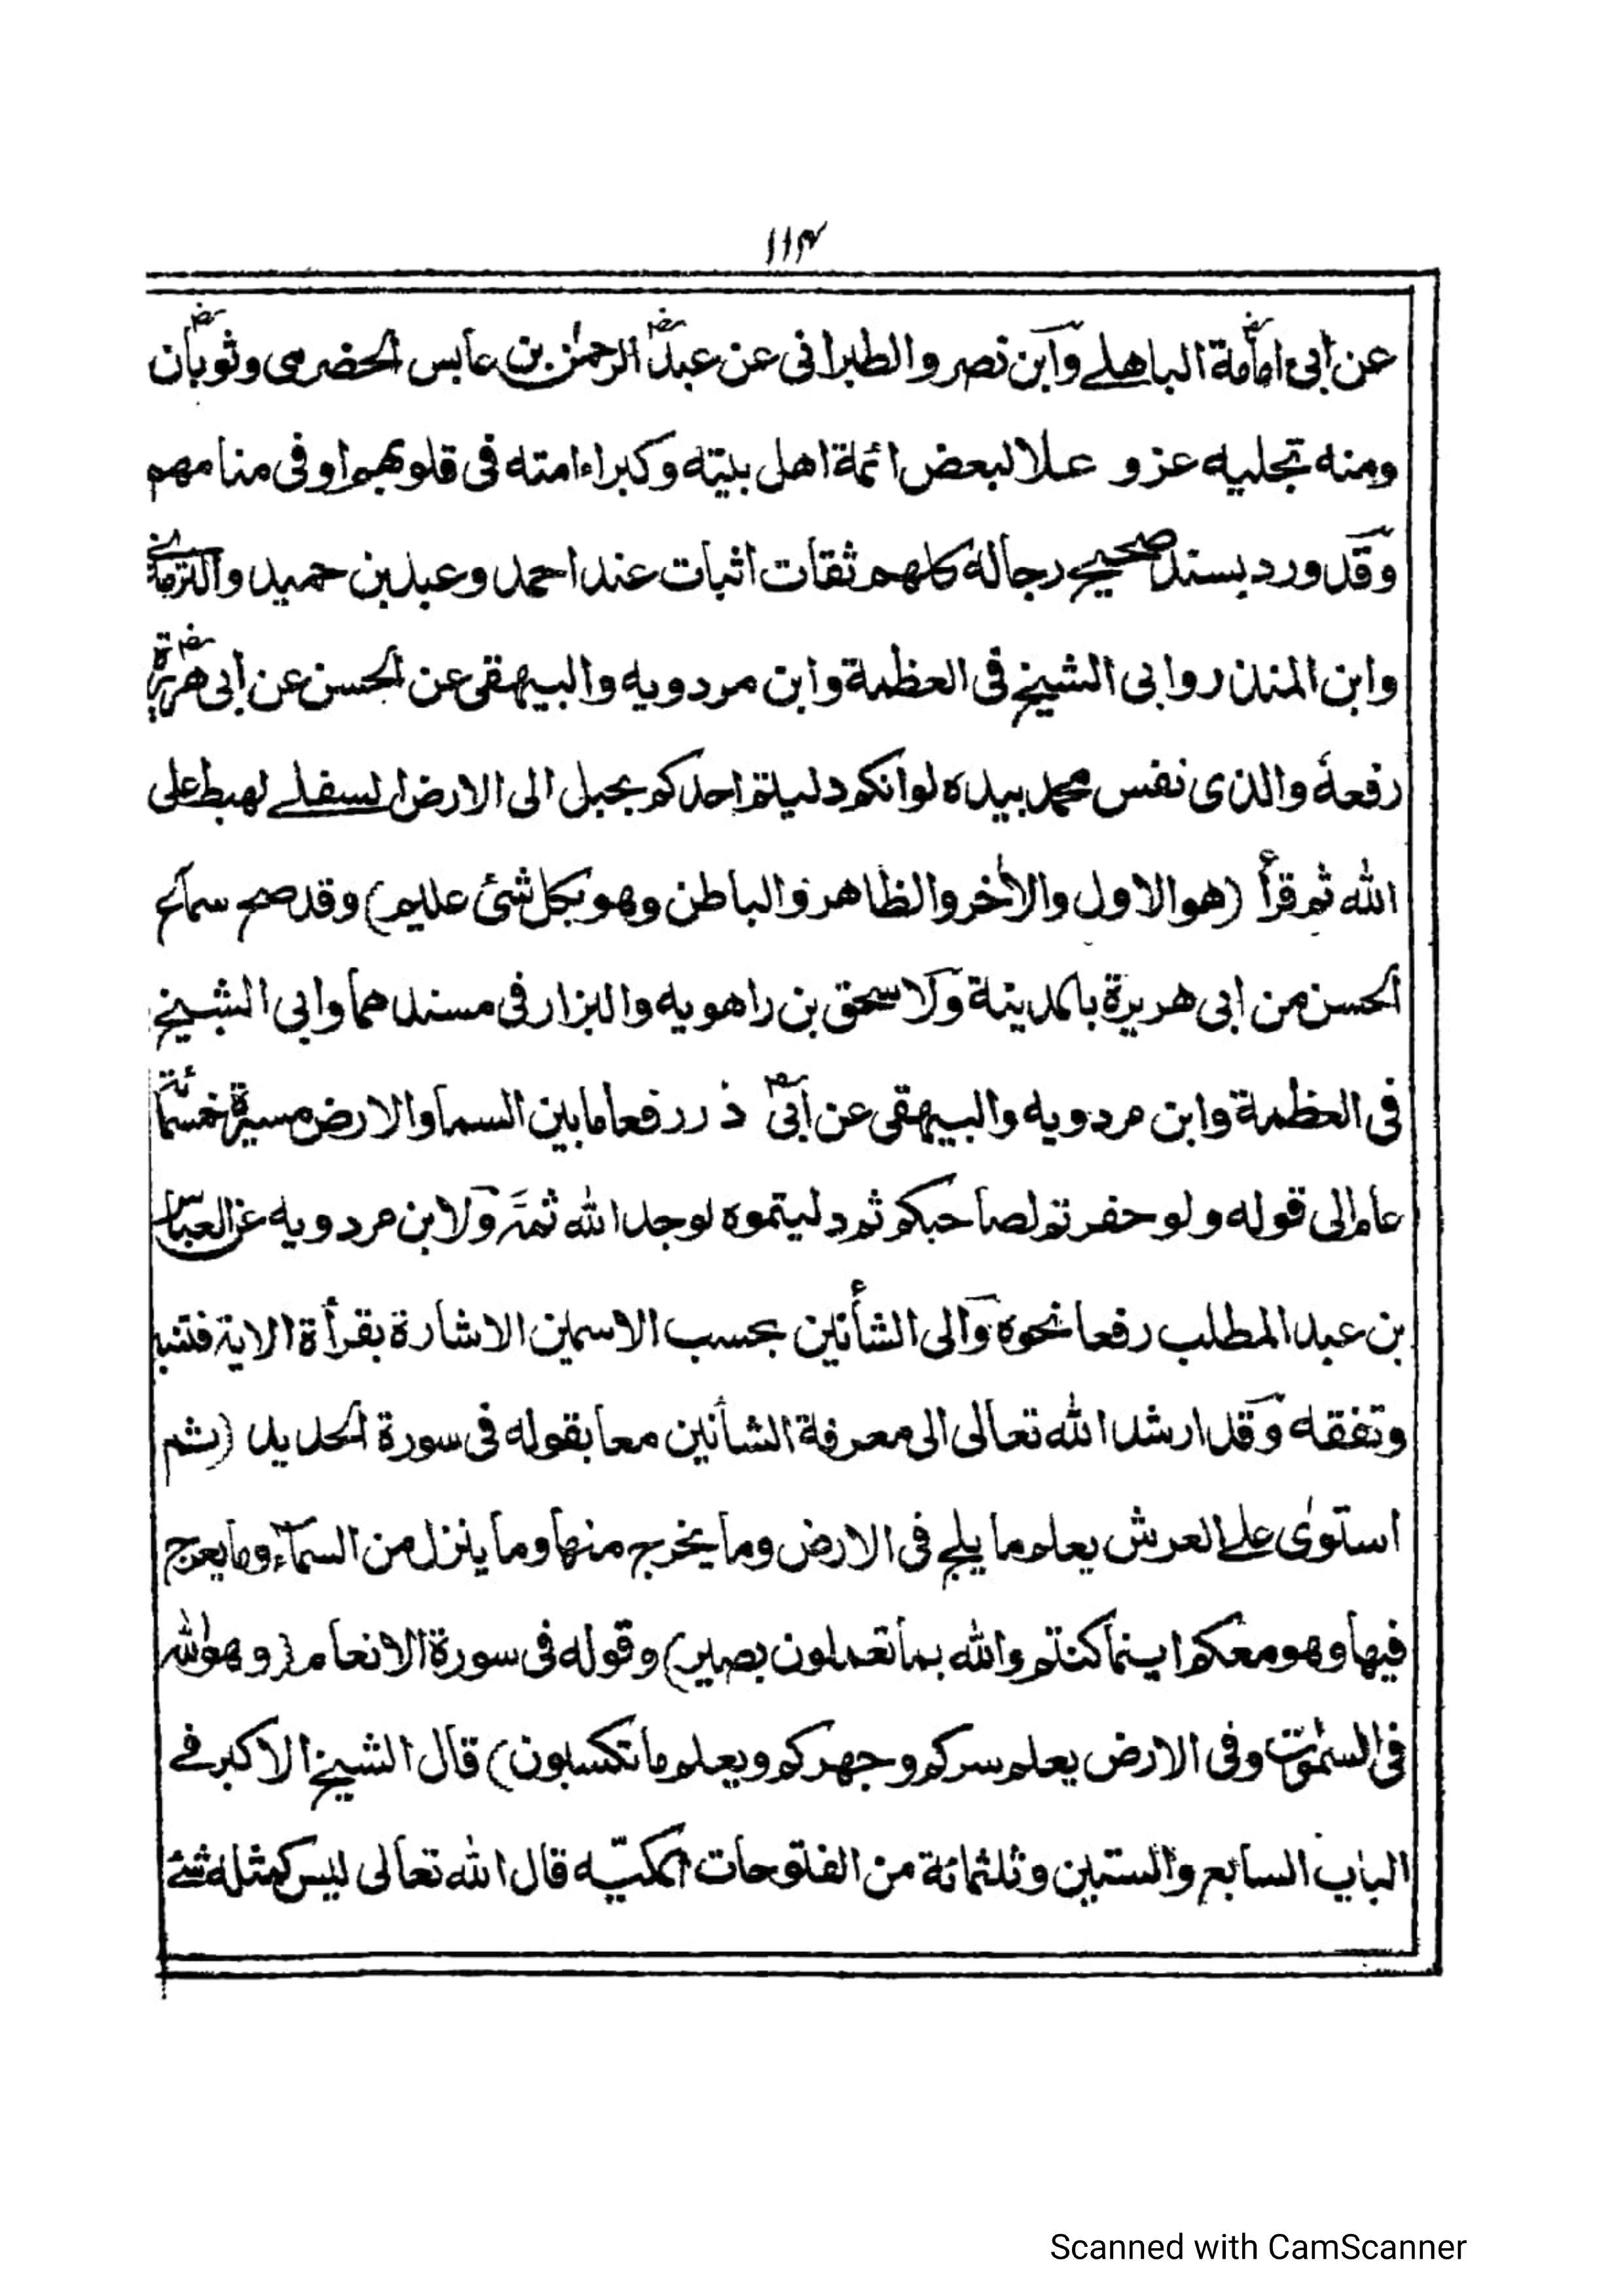 ۱۱۴
عن ابی امامة الباهلے وابن نصر والطبرانی عن عبد الرحمٰن بن عابس الحضرمی وثوبان
ومنه تجلیه عز و علا لبعض ائمة اهل بیته وکبراء امته فی قلوبهم او فی منامهم
وقد ورد بسند صحیح رجاله کلهم ثقات اثبات عند احمد وعبد بن حمید والترمذی
وابن المنذر وابی الشیخ فی العظمة وابن مردویه والبیهقی عن الحسن عن ابی هریرة
رفعه والذی نفس محمد بیده لو انکم دلیتم احدکم بحبل الی الارض السفلے لهبط علی
الله ثم قرأ (هو الاول والاٰخر والظاهر والباطن وهو بکل شئ علیم) وقد صح سماع
الحسن من ابی هریرة بالمدینة ولاسحق بن راهویه والبزار فی مسندهما وابی الشیخ
فی العظمة وابن مردویه والبیهقی عن ابی ذر رفعا ما بین السما والارض مسیرة خمسمائة
عام الی قوله ولو حفرتم لصاحبکم ثم دلیتموه لوجد الله ثمة ولابن مردویه عن العباس
بن عبد المطلب رفعا نحوه والی الشأنین بحسب الاسمین الاشارة بقرأة الایة فتنبه
وتفقه وقد ارشد الله تعالی الی معرفة الشأنین معا بقوله فی سورة الحدید (ثم
استوٰی علے العرش یعلم ما یلج فی الارض وما یخرج منها وما ینزل من السمآء وما یعرج
فیها وهو معکم اینما کنتم والله بما تعملون بصیر) وقوله فی سورة الانعام (وهو الله
فی السمٰوٰت وفی الارض یعلم سرکم وجهرکم ویعلم ما تکسبون) قال الشیخ الاکبر فے
الباب السابع والستین وثلثمائة من الفتوحات المکیّه قال الله تعالی لیس کمثله شئے
Scanned with CamScanner